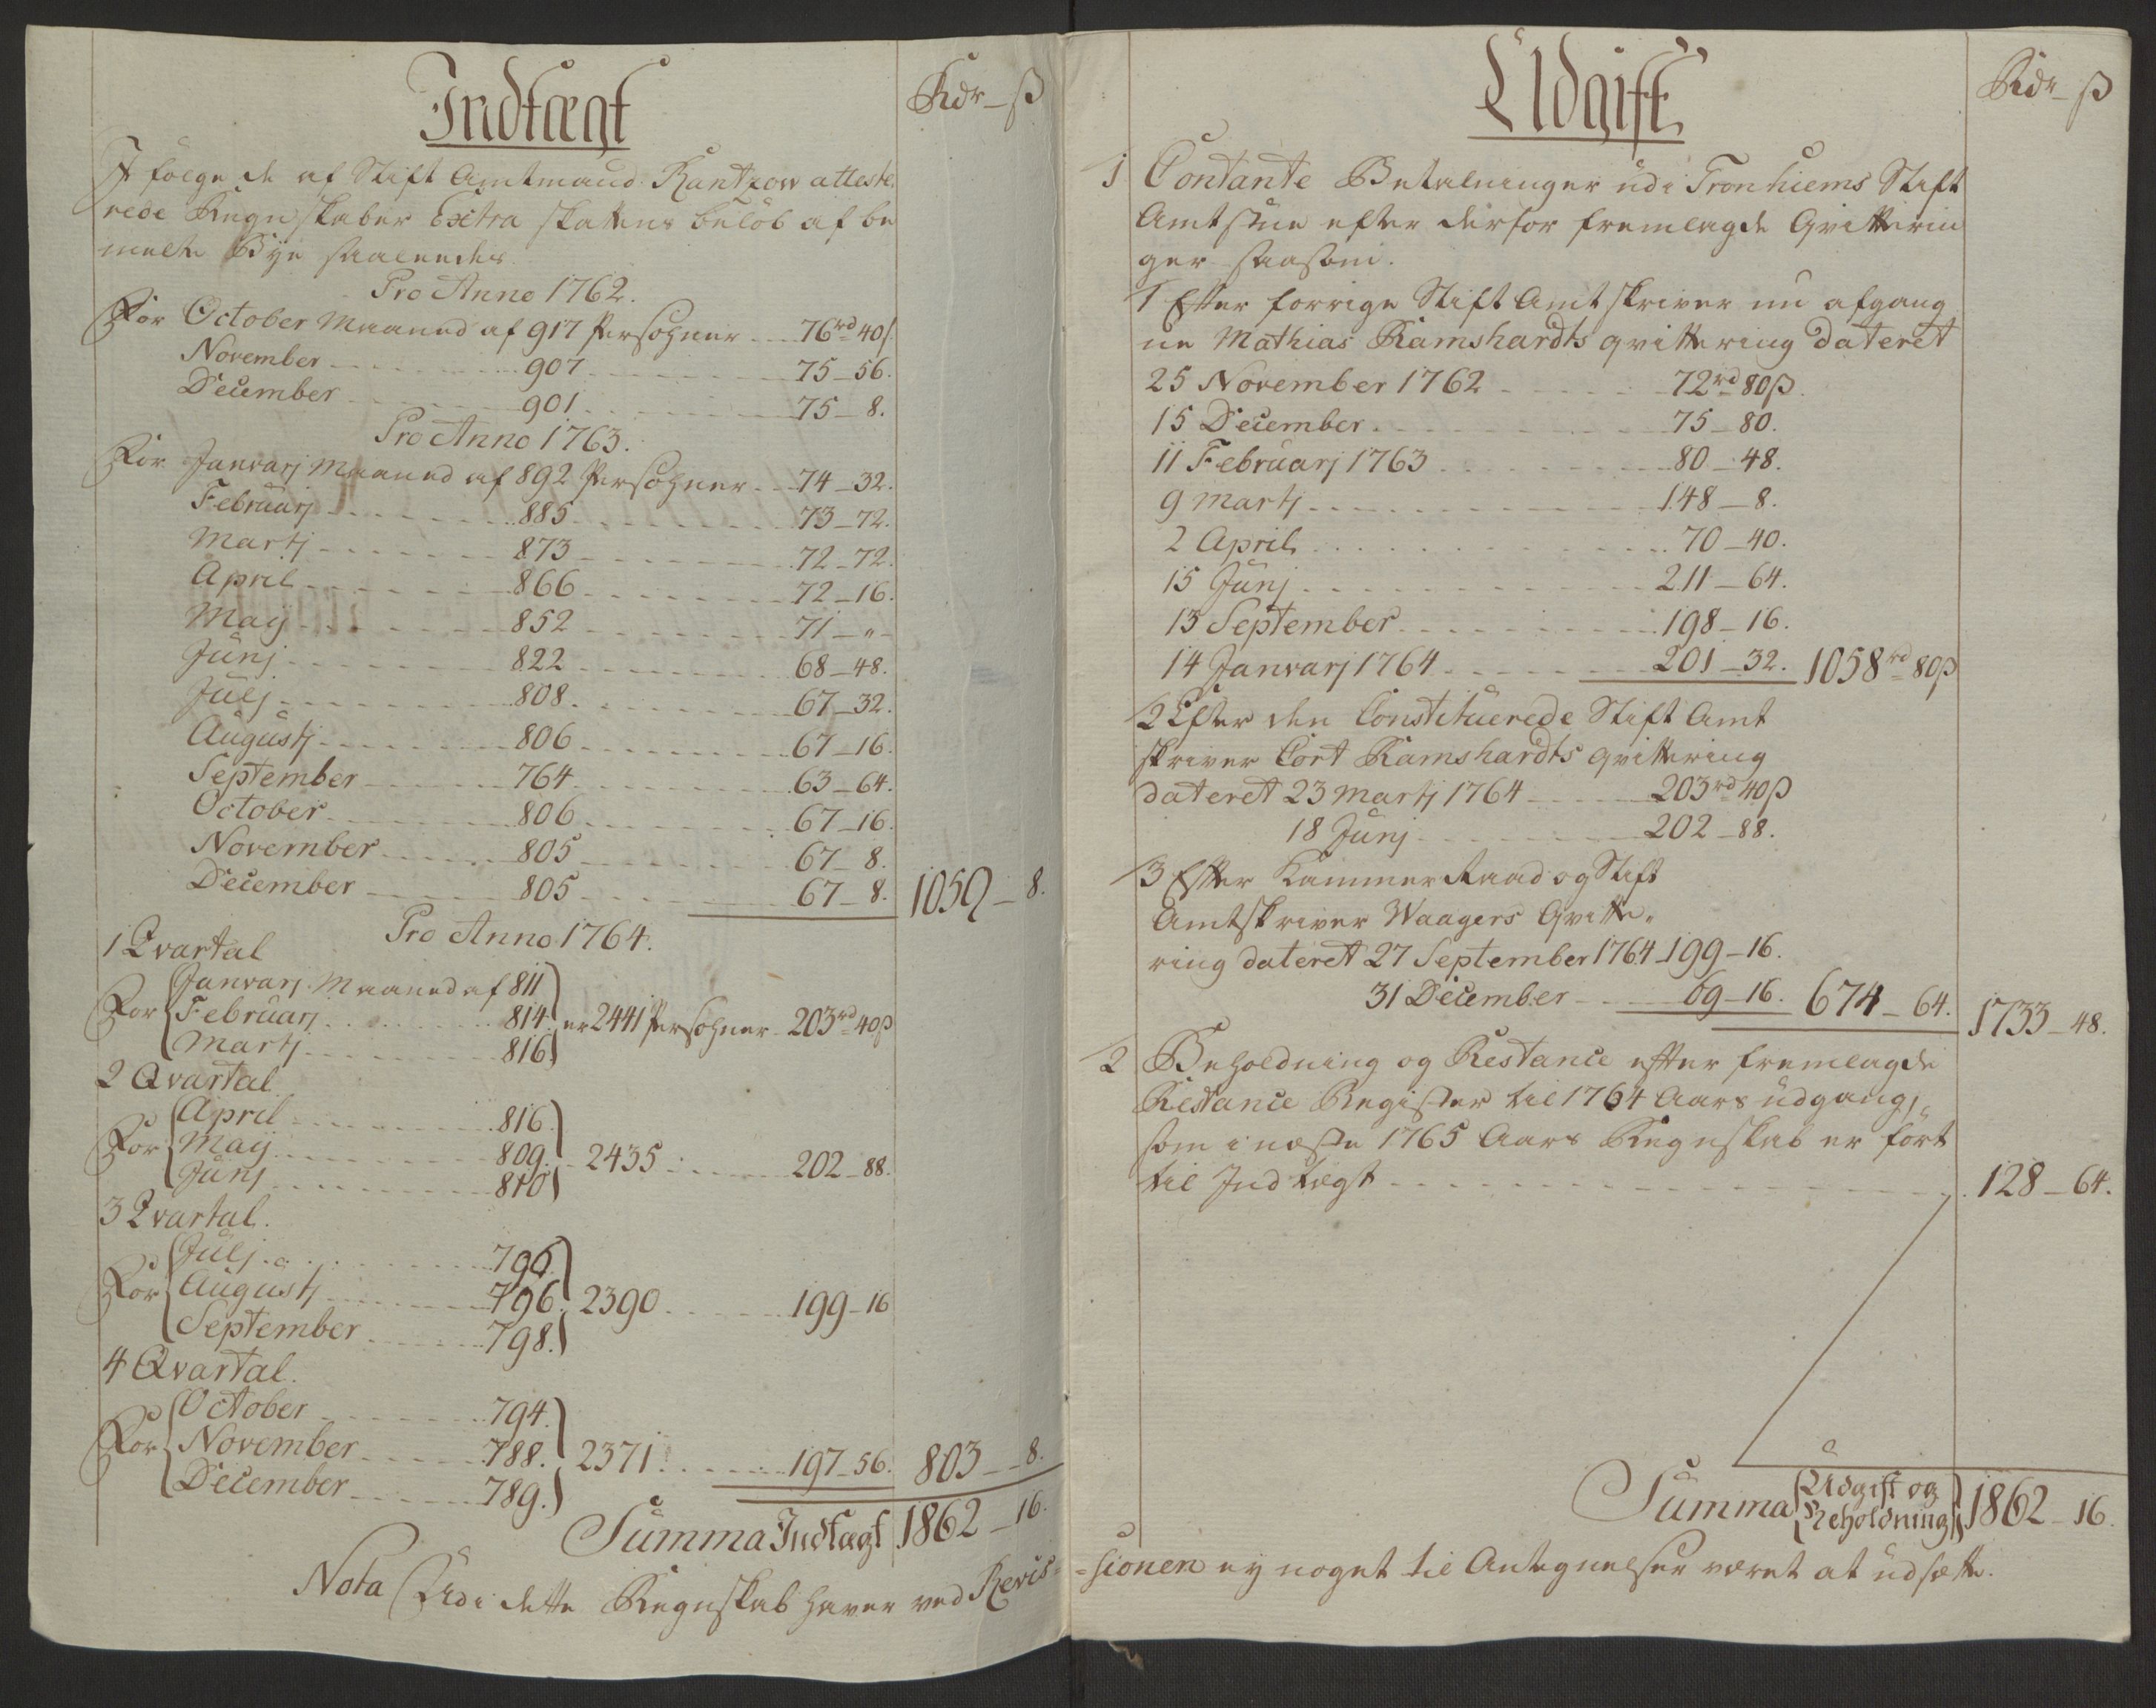 Indtægt
Rdr – ß
I følge de af Stift Amtmand Rantzow atteste,
rede Regnskaber Extra skattens beløb af be
melte Bye saaledes.
Pro Anno 1762.
For October Maaned af 917 Persohner 76rd 40ß
November 907 75 – 56.
December 901 75 – 8.
Pro Anno 1763.
For Janvarj Maaned af 892 Persohner 74 – 32.
Februarj 885 73 – 72.
Martj 873 72 – 72.
April 866 72 – 16.
Maij 852 71 – „ –
Junj 822 68 – 48.
Julj 808. 67 – 32.
Augustj 806 67 – 16.
September 764 63 – 64.
October 806 67 – 16.
November 805 67 – 8.
December 805 67 – 8. 1059 – 8.
Pro Anno 1764.
1 Qvartal
Janvarj Maaned af 811
For Februarj 814 er 2441 Persohner 203rd 40ß
Martj 816
2 Qvartal
April 816
For Maij 809. 2435 202 – 88.
Junj 810
3 Qvartal.
Julj 796
For Augustj 796. 2390 199 – 16
September 798.
4 Qvartal.
October 794.
For November 788. 2371. 197 – 56. 803 – 8.
December 789.
Summa Indtægt 1862 – 16.
Nota Udi dette Regnskab haver ved Revis=
Udgift
Rdr – ß
1 Contante Betalninger udi Tronhiems Stift
Amtstue efter derfor fremlagde Qvitterin
ger saasom.
1 Efter forrige Stift Amtskriver nu afgang
ne Mathias Ramshardts qvittering dateret
25 November 1762 72rd 80ß.
15 December 75 – 80.
11 Februarj 1763 80 – 48.
9 Martj 148 – 8.
2 April 70 – 40.
15 Junj 211 – 64.
13 September 198 – 16.
14 Janvarj 1764 201 – 32. 1058rd 80ß
2 Efter den Constituerede Stift Amt
skriver Cort Ramshardts qvittering
dateret 23 Martj 1764 203rd 40ß
18 Junj 202 – 88.
3 Efter Kammer Raad og Stift
Amtskriver Waagers Qvitte„
ring dateret 27 September 1764 199 – 16.
31 December 69 – 16. 674 – 64. 1733 – 48.
2 Beholdning og Restance efter fremlagde
Restance Register til 1764 Aars udgang,
som i neste 1765 Aars Regnskab er ført
til Indtægt 128 – 64.
Summa Udgift og Beholdning 1862 – 16.
=sionen ey noget til Antegnelser været at udsætte.